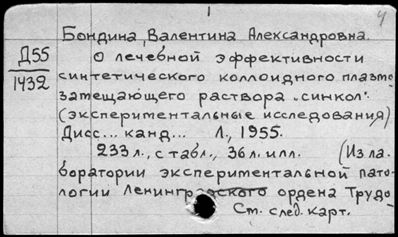 4
Бондина, Валентина Александровна.
Д55
1432
О лечебной эффективности
синтетического коллоидного плазмо
замещающего раствора „синкол".
(экспериментальные исследования)
Дисс... канд... Л., 1955.
233 л., с табл., 36 л. илл. (Из ла
боратории экспериментальной пато-
логии Ленинградского ордена Трудо
См. след. карт.